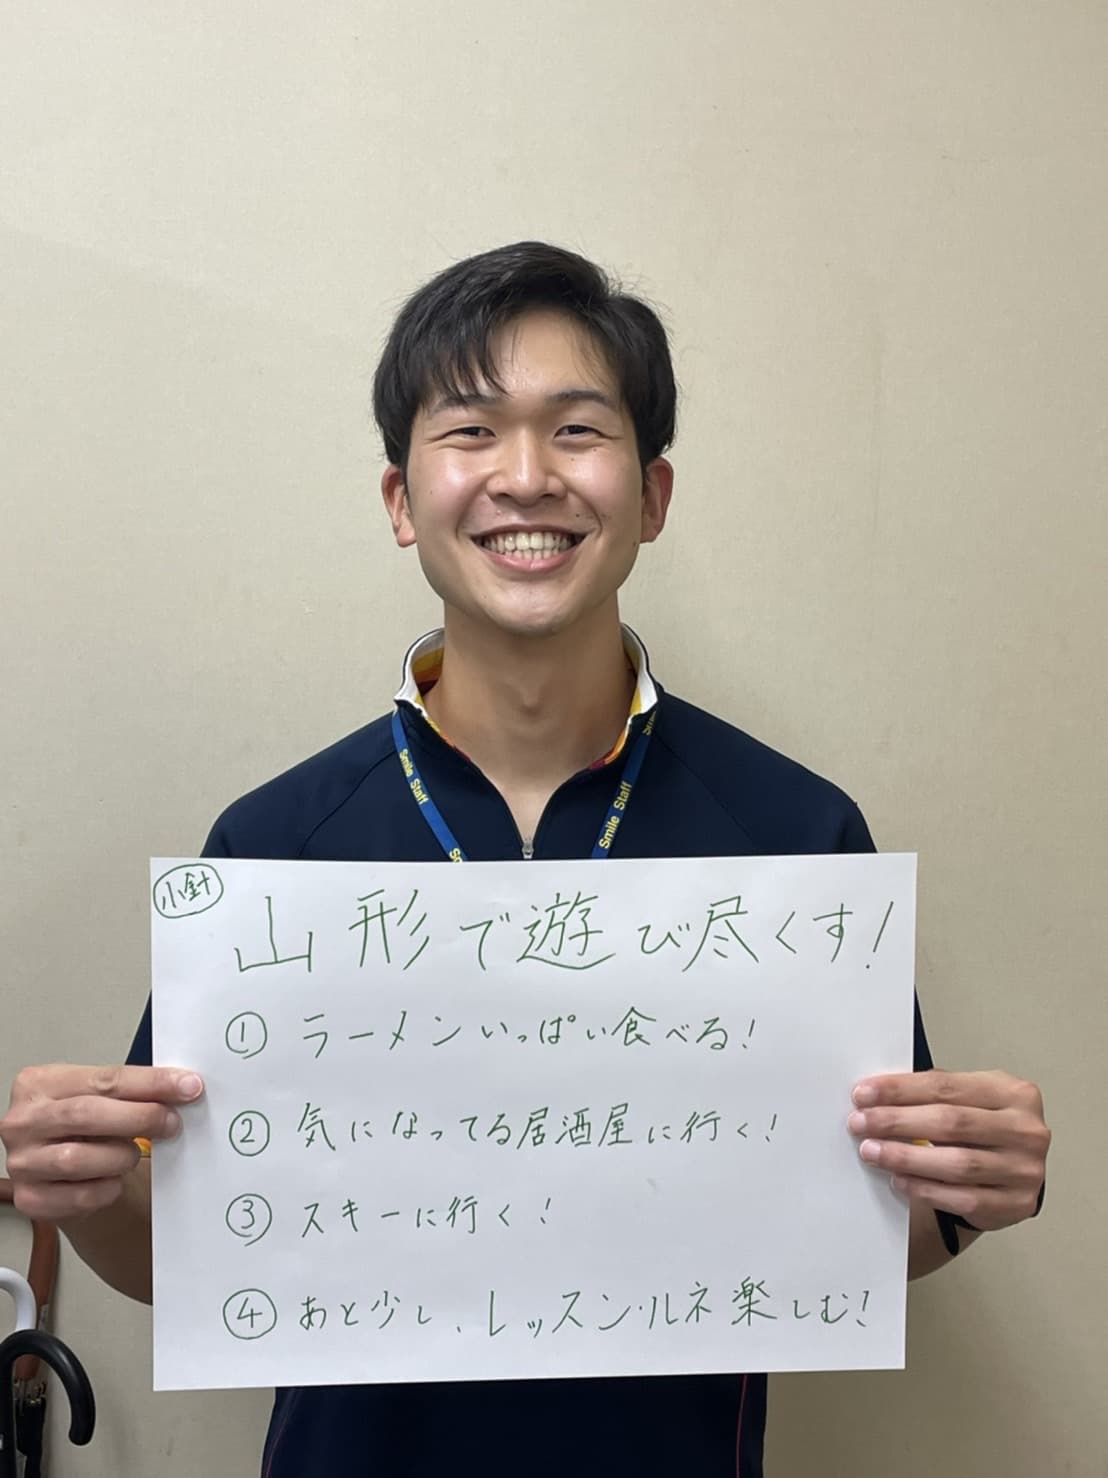 Smile Staff
Smile Staff
小針
山形で遊び尽くす!
① ラーメンいっぱい食べる!
② 気になってる居酒屋に行く!
③ スキーに行く!
④ あと少し、レッスン・ルネ楽しむ!